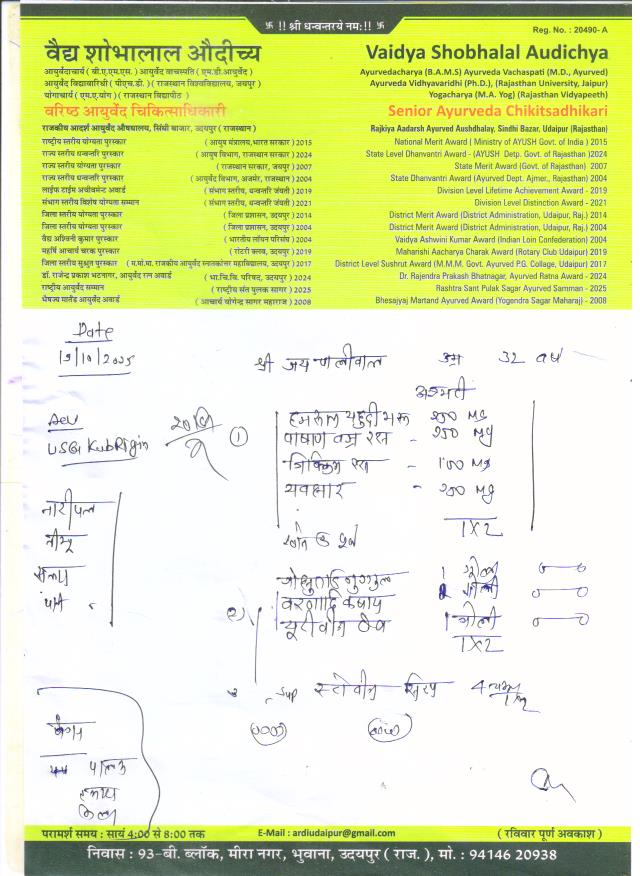 卐 !! श्री धन्वन्तरये नमः!! 卐
Reg. No. : 20490- A
वैद्य शोभालाल औदीच्य
Vaidya Shobhalal Audichya
आयुर्वेदाचार्य ( बी.ए.एम.एस. ) आयुर्वेद वाचस्पति ( एम.डी.आयुर्वेद )
Ayurvedacharya (B.A.M.S) Ayurveda Vachaspati (M.D., Ayurved)
आयुर्वेद विद्यावारिधी ( पीएच.डी. ) ( राजस्थान विश्वविद्यालय, जयपुर )
Ayurveda Vidhyavaridhi (Ph.D.), (Rajasthan University, Jaipur)
योगाचार्य ( एम.ए.योग ) ( राजस्थान विद्यापीठ )
Yogacharya (M.A. Yog) (Rajasthan Vidyapeeth)
वरिष्ठ आयुर्वेद चिकित्साधिकारी
Senior Ayurveda Chikitsadhikari
राजकीय आदर्श आयुर्वेद औषधालय, सिंधी बाजार, उदयपुर ( राजस्थान )
Rajkiya Aadarsh Ayurved Aushdhalay, Sindhi Bazar, Udaipur (Rajasthan)
राष्ट्रीय स्तरीय योग्यता पुरस्कार ( आयुष मंत्रालय,भारत सरकार ) 2015
National Merit Award ( Ministry of AYUSH Govt. of India ) 2015
राज्य स्तरीय धन्वन्तरि पुरस्कार ( आयुष विभाग, राजस्थान सरकार ) 2024
State Level Dhanvantri Award - (AYUSH Detp. Govt. of Rajasthan )2024
राज्य स्तरीय योग्यता पुरस्कार ( राजस्थान सरकार, जयपुर ) 2007
State Merit Award (Govt. of Rajasthan) 2007
राज्य स्तरीय धन्वन्तरि पुरस्कार ( आयुर्वेद विभाग, अजमेर, राजस्थान ) 2004
State Dhanvantri Award (Ayurved Dept. Ajmer., Rajasthan) 2004
लाईफ टाईम अचीवमेन्ट अवार्ड ( संभाग स्तरीय, धन्वन्तरि जंयती ) 2019
Division Level Lifetime Achievement Award - 2019
संभाग स्तरीय विशेष योग्यता सम्मान ( संभाग स्तरीय, धन्वन्तरि जंयती ) 2021
Division Level Distinction Award - 2021
जिला स्तरीय योग्यता पुरस्कार ( जिला प्रशासन, उदयपुर ) 2014
District Merit Award (District Administration, Udaipur, Raj.) 2014
जिला स्तरीय योग्यता पुरस्कार ( जिला प्रशासन, उदयपुर ) 2004
District Merit Award (District Administration, Udaipur, Raj.) 2004
वैद्य अश्विनी कुमार पुरस्कार ( भारतीय लॉयन परिसंघ ) 2004
Vaidya Ashwini Kumar Award (Indian Loin Confederation) 2004
महर्षि आचार्य चरक पुरस्कार ( रोटरी क्लब, उदयपुर ) 2019
Maharishi Aacharya Charak Award (Rotary Club Udaipur) 2019
जिला स्तरीय सुश्रुत पुरस्कार ( म.मो.मा. राजकीय आयुर्वेद स्नातकोत्तर महाविद्यालय, उदयपुर ) 2017
District Level Sushrut Award (M.M.M. Govt. Ayurved P.G. Collage, Udaipur) 2017
डॉ. राजेन्द्र प्रकाश भटनागर, आयुर्वेद रत्न अवार्ड ( भा.चि.वि. परिषद, उदयपुर ) 2024
Dr. Rajendra Prakash Bhatnagar, Ayurved Ratna Award - 2024
राष्ट्रीय आयुर्वेद सम्मान ( राष्ट्रीय संत पुलक सागर ) 2025
Rashtra Sant Pulak Sagar Ayurved Samman - 2025
भैषज्य मार्तण्ड आयुर्वेद अवार्ड ( आचार्य योगेन्द्र सागर महाराज ) 2008
Bhesajyaj Martand Ayurved Award (Yogendra Sagar Maharaj) - 2008
Date
श्री जय पालीवाल उम्र 32 वर्ष
अश्मरी
250 mg
USG KUB Region ①
पाषाण वज्र रस - 250 mg
त्रिविक्रम रस - 100 mg
यवक्षार - 200 mg
1X2
नारियल
नीम्बू
गोक्षुरादि गुग्गुलु 1 गोली
वरुणादि कषाय गोली
1 गोली
1X2
Syp स्टोवीन सिरप 4 चम्मच
बैंगन
पालक
टमाटर
परामर्श समय : सायं 4:00 से 8:00 तक
E-Mail : ardiudaipur@gmail.com
( रविवार पूर्ण अवकाश )
निवास : 93-बी. ब्लॉक, मीरा नगर, भुवाना, उदयपुर ( राज. ), मो. : 94146 20938